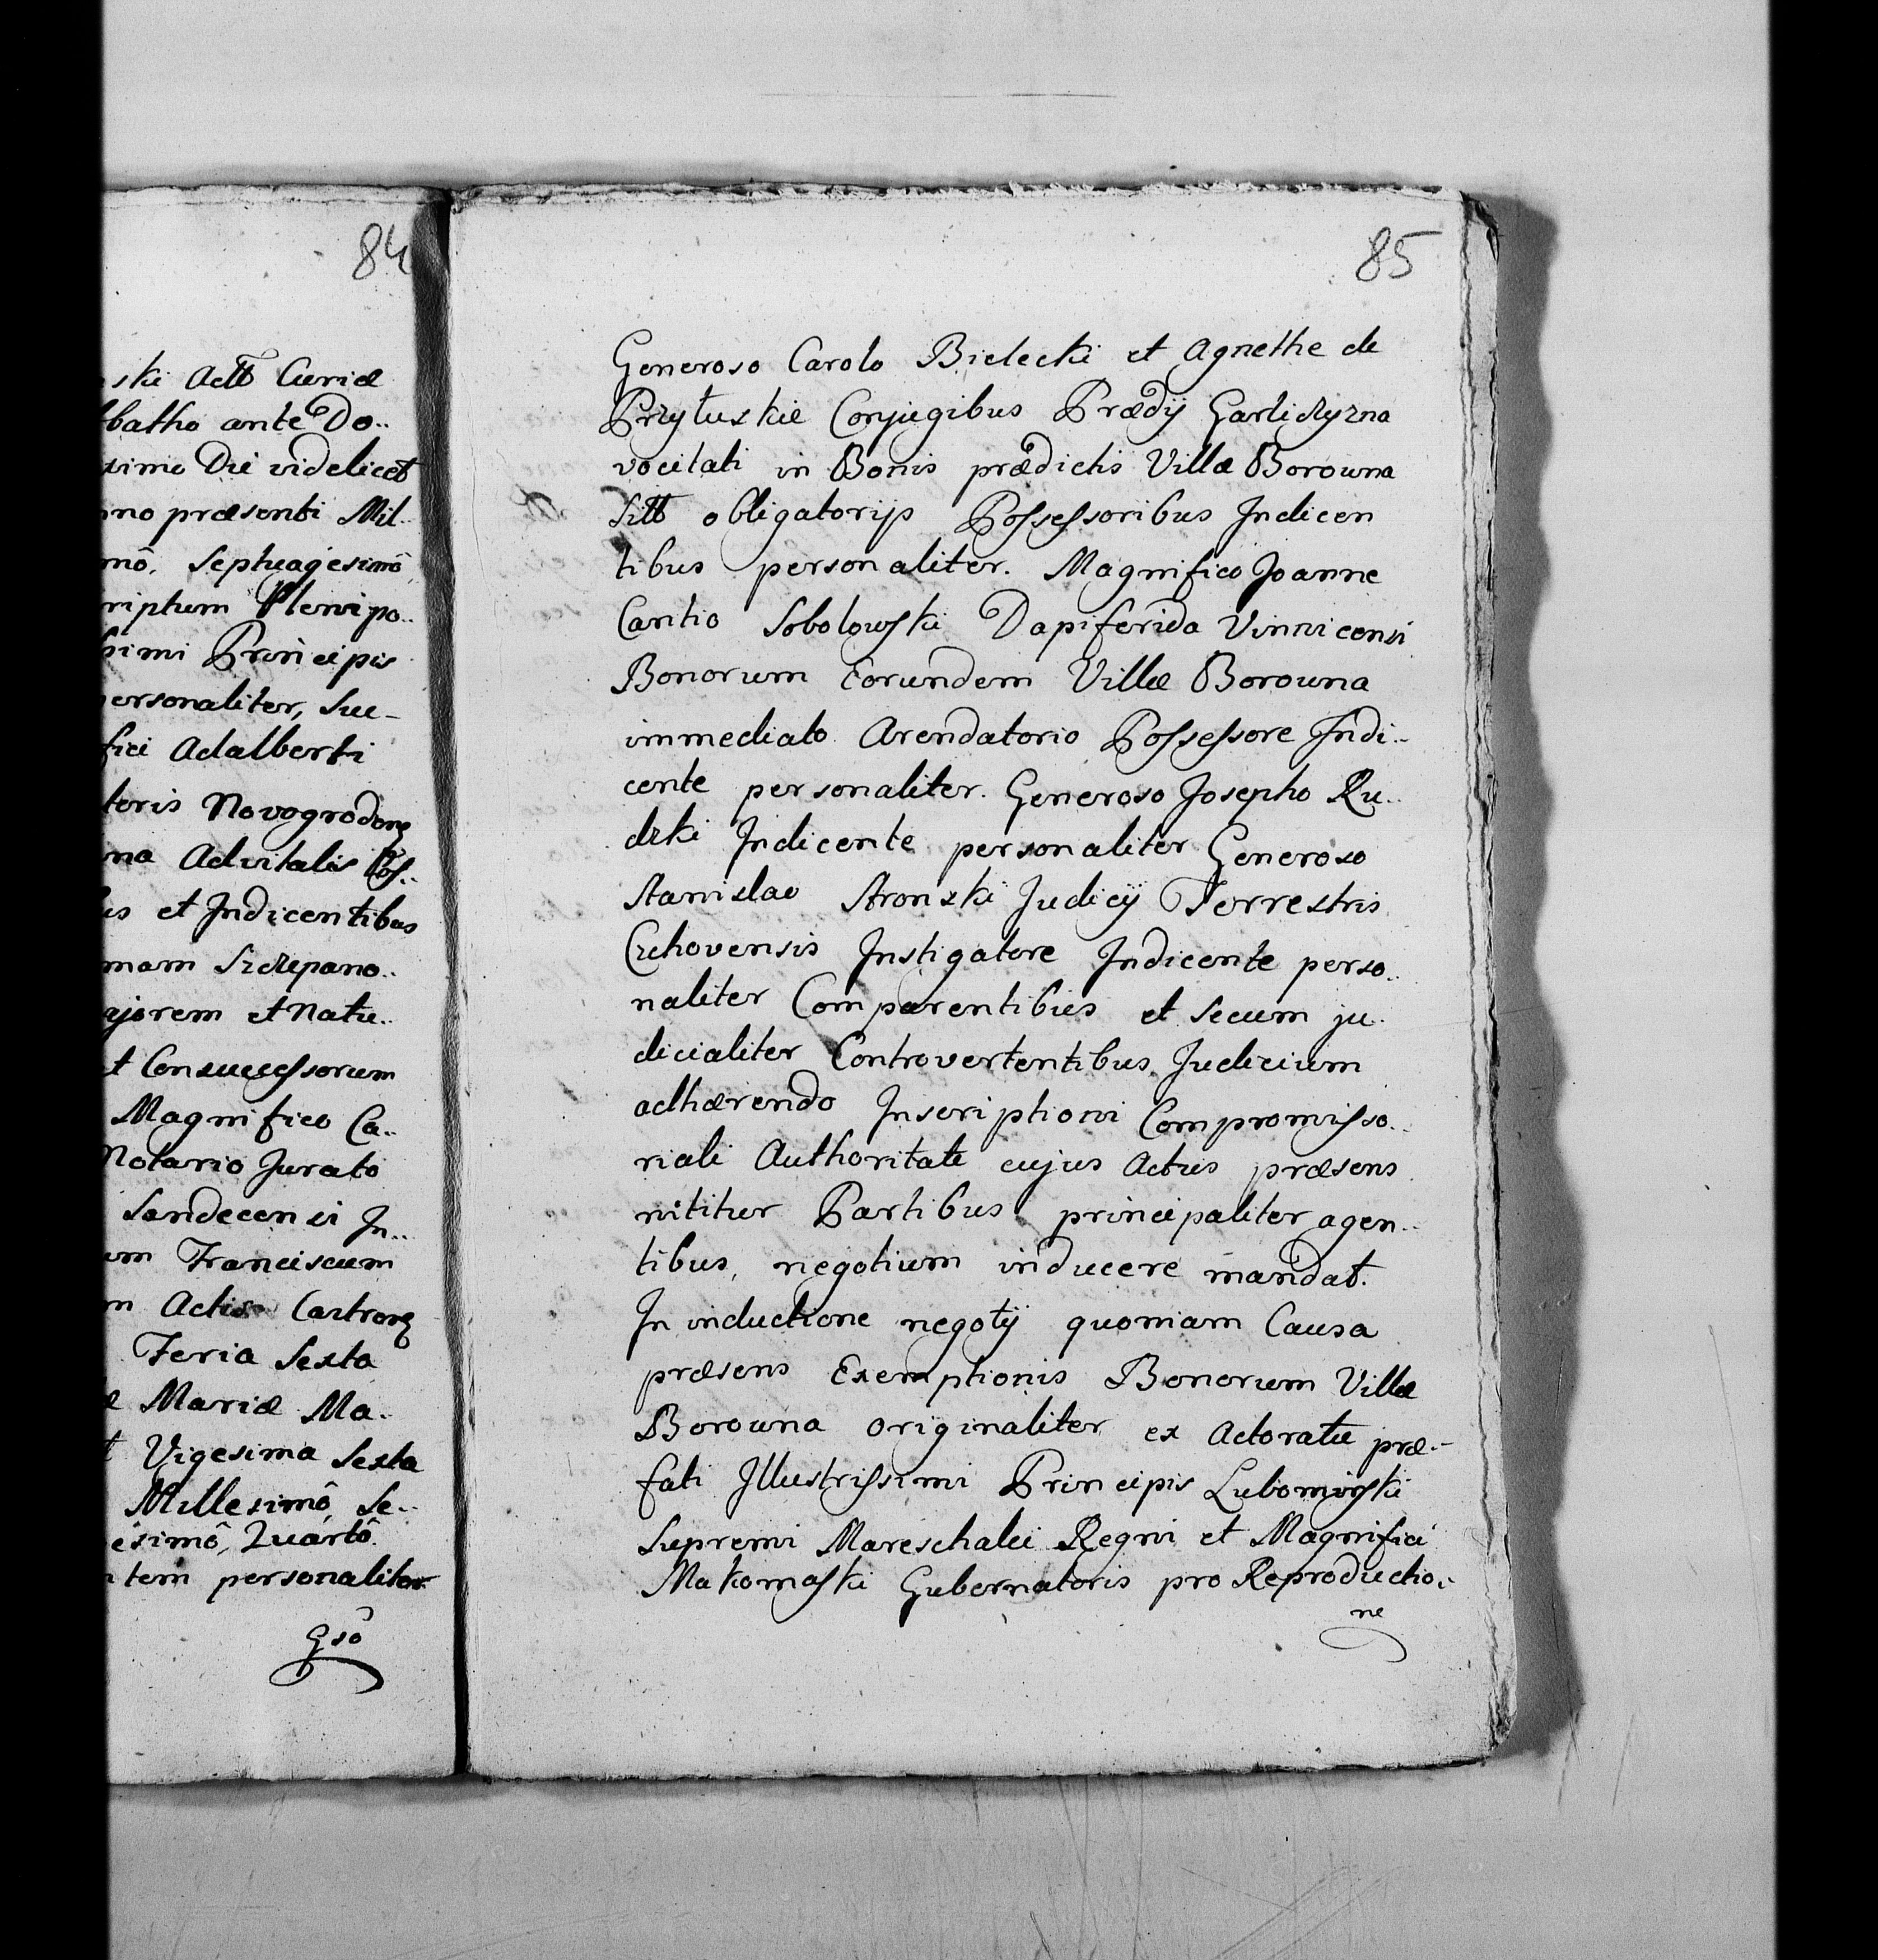 84
ski Actt Curiæ
bbatho ante Do..
ximo Die videlicet
nno præsenti Mil..
mô, Septuagesimô
riptum Plenipo..
simi Principis
personaliter, Suc-
fici Adalberti
toris Novogroden
na Advitalis Pos..
us et Indicentibus
mam Szczepano..
ajorem et Natu..
t Consuccessorum
Magnifico Ca..
Notario Jurato
Sandecensi In..
um Franciscum
m Actis Castren
Feria Sexta
æ Mariæ Ma..
t Vigesima Sexta
Millesimô, Se..
esimô, Quartô.
ntem personaliter
Gsô
85
Generoso Carolo Bielecki et Agnethe de
Przyłuskie Conjugibus Prædij Garliczyzna
vocitati in Bonis prædictis Villæ Borowna
Sitt obligatorijs Possessoribus Indicen
tibus personaliter. Magnifico Joanne
Cantio Sobolowski Dapiferida Vinnicensi
Bonorum Eorundem Villæ Borowna
immediato Arendatorio Possessore Indi..
cente personaliter. Generoso Josepho Ru..
dzki Indicente personaliter Generoso
Stanislao Stronski Judicij Terrestris
Czchovensis Instigatore Indicente perso..
naliter Comparentibus et secum ju..
dicialiter Controvertentibus, Judicium
adhærendo Inscriptioni Compromisso..
riali Authoritate cujus Actus præsens
nititur Partibus principaliter agen..
tibus, negotium inducere mandat.
In inductione negotÿ quoniam Causa
præsens Exemptionis Bonorum Villæ
Borowna originaliter ex Actoratu præ..
fati Illustrissimi Principis Lubomirski
Supremi Mareschalci Regni et Magnifici
Makomaski Gubernatoris pro Reproductio..
ne